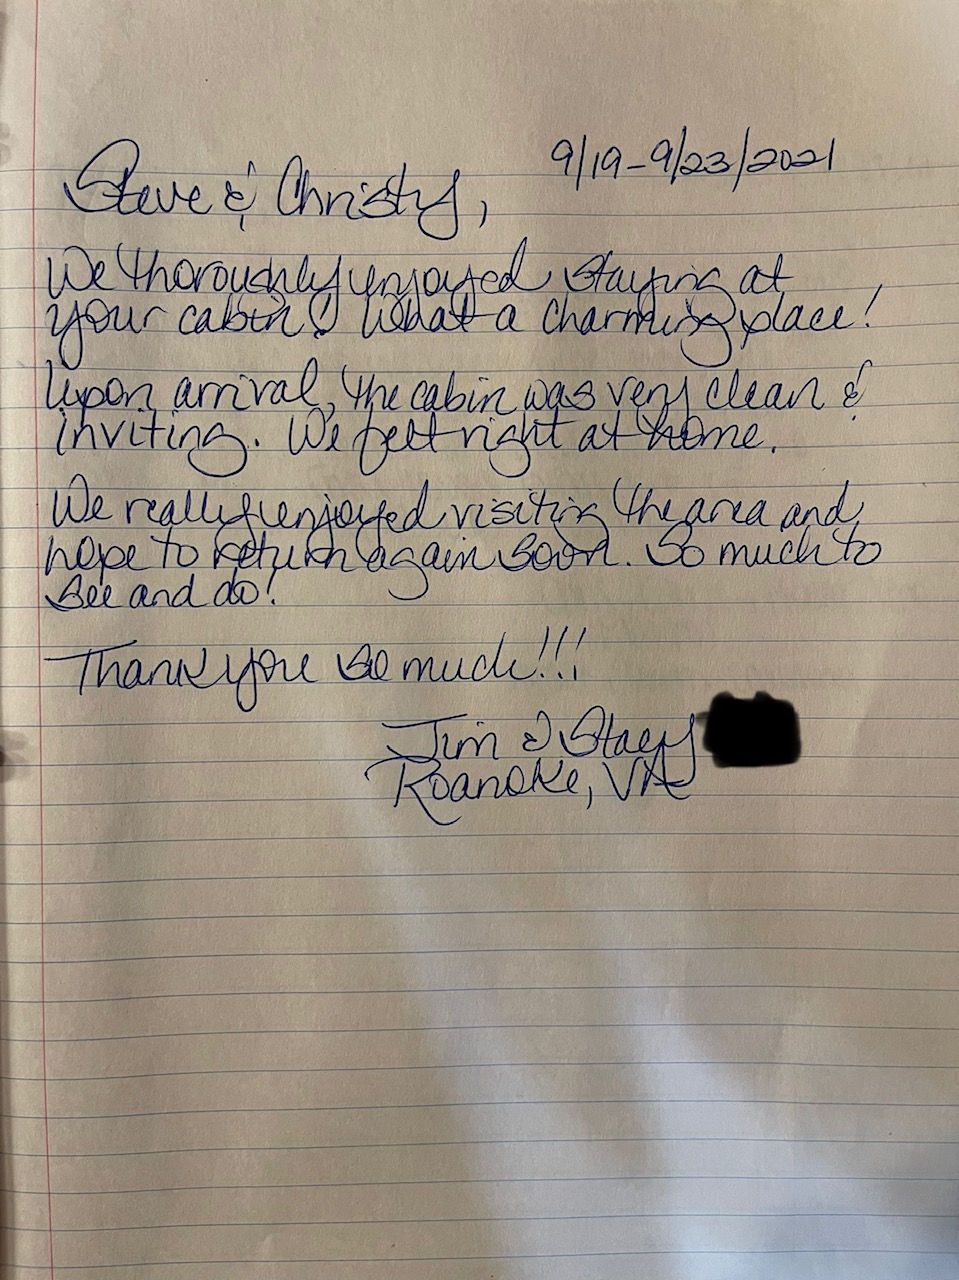 9/19-9/23/2021
Steve & Christy,
We thoroughly enjoyed staying at
your cabin! What a charming place!
Upon arrival, the cabin was very clean &
inviting. We felt right at home.
We really enjoyed visiting the area and
hope to return again soon. So much to
see and do!
Thank you so much!!!
Jim & Stacy
Roanoke, VA